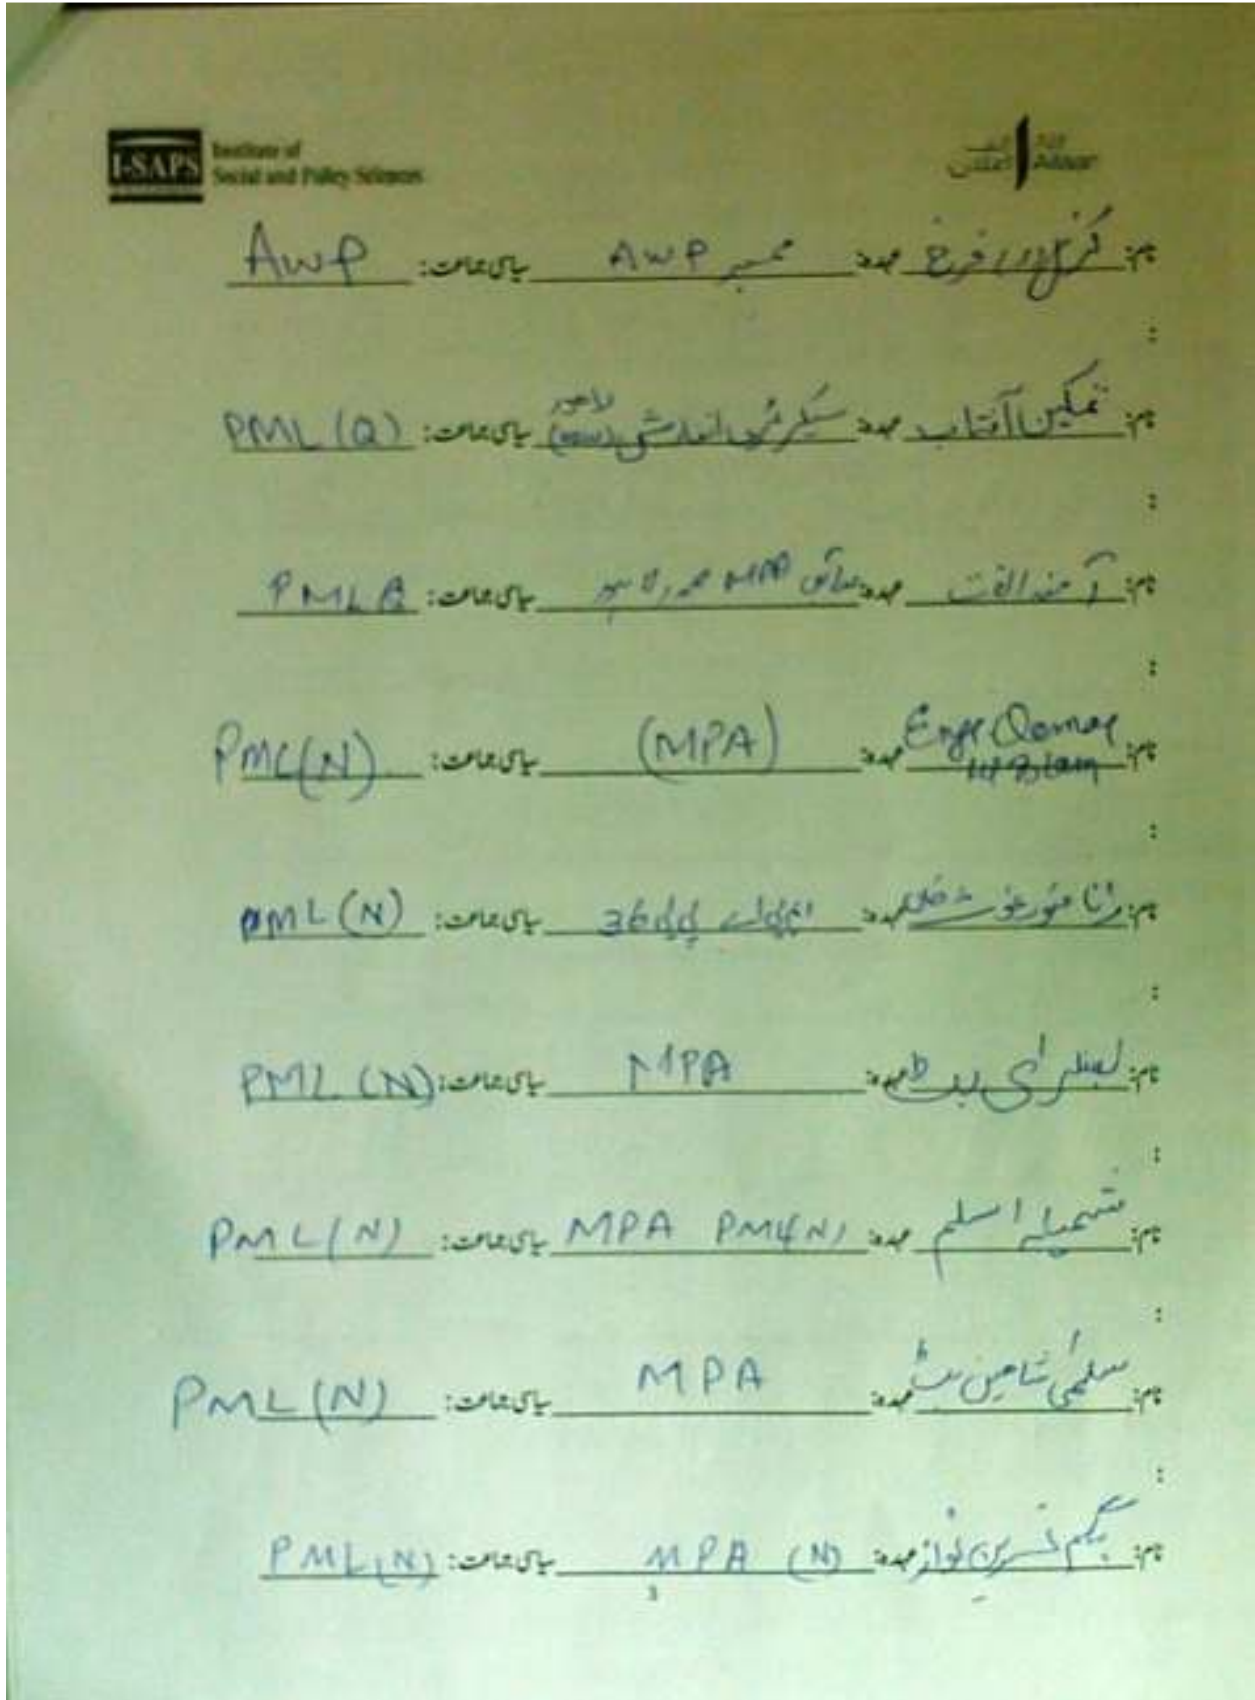 I-SAPS Institute of
Social and Policy Sciences
الف اعلان Alif Ailaan
نام: فرخ عہدہ: ممبر AWP سیاسی جماعت: AWP
:
نام: تمکین آفتاب عہدہ: سیکرٹری لاہور سیاسی جماعت: PML (Q)
:
نام: آمنہ الفت عہدہ: سابق MPA لاہور سیاسی جماعت: PMLQ
:
نام: Engr Qamar ul Islam عہدہ: (MPA) سیاسی جماعت: PML(N)
:
نام: رانا منور غوث خان عہدہ: ایم پی اے پی پی 36 سیاسی جماعت: PML (N)
:
نام: لبنیٰ بٹ عہدہ: MPA سیاسی جماعت: PML (N)
:
نام: شمیلہ اسلم عہدہ: MPA PML(N) سیاسی جماعت: PML(N)
:
نام: سلمیٰ شاہین بٹ عہدہ: MPA سیاسی جماعت: PML(N)
:
نام: بیگم نسرین نواز عہدہ: MPA (N) سیاسی جماعت: PML(N)
3